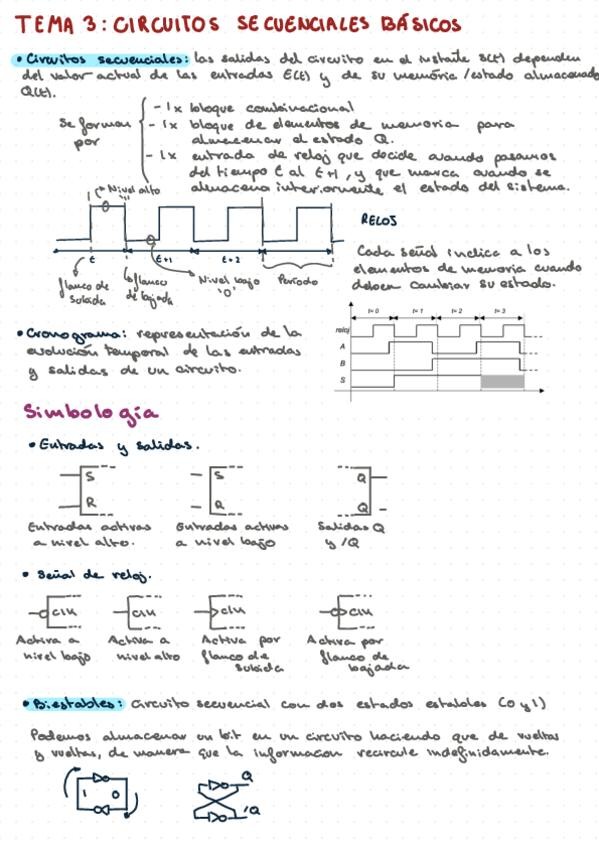 TEMA 3: CIRCUITOS SECUENCIALES BÁSICOS
• Circuitos secuenciales: las salidas del circuito en el instante S(t) dependen
del valor actual de las entradas E(t) y de su memoria/estado almacenado
Q(t).
Se forman por
- 1x bloque combinacional
- 1x bloque de elementos de memoria para
almacenar el estado Q.
- 1x entrada de reloj que decide cuando pasamos
del tiempo t al t+1, y que marca cuando se
almacena internamente el estado del sistema.
Nivel alto
"1"
RELOJ
t
t+1
t+2
flanco de
subida
flanco
de bajada
Nivel bajo
'0'
Período
Cada señal indica a los
elementos de memoria cuando
deben cambiar su estado.
• Cronograma: representación de la
evolución temporal de las entradas
y salidas de un circuito.
t= 0 t= 1 t= 2 t= 3
reloj
A
B
S
Simbología
• Entradas y salidas.
S S Q
R R Q
Entradas activas
a nivel alto.
Entradas activas
a nivel bajo
Salidas Q
y /Q
• Señal de reloj.
Clk Clk Clk Clk
Activa a
nivel bajo
Activa a
nivel alto
Activa por
flanco de
subida
Activa por
flanco de
bajada
• Biestables: circuito secuencial con dos estados estables (0 y 1)
Podemos almacenar un bit en un circuito haciendo que de vueltas
y vueltas, de manera que la información recircule indefinidamente.
1 0
Q
/Q